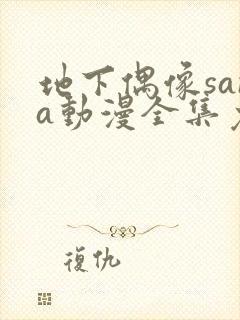 地下偶像sa
a動漫全集
復仇